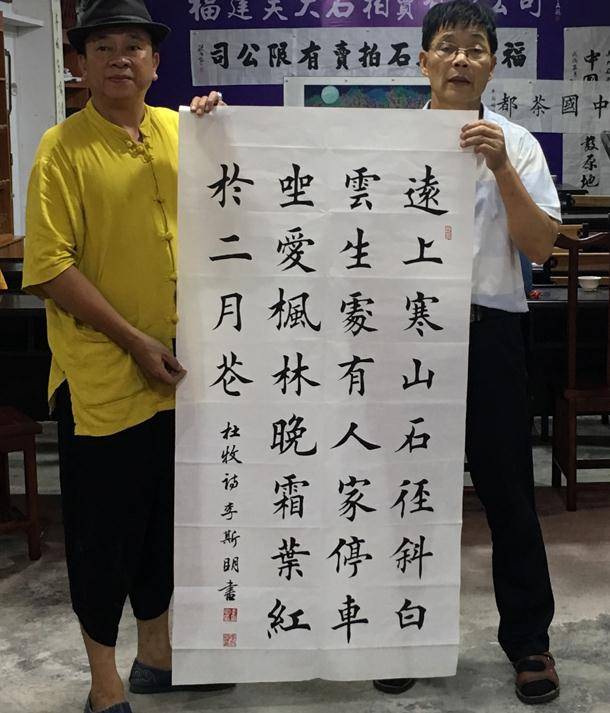 福建天大石拍賣有限公司
福石拍賣有限公司
中國茶都
中國
發原地
遠上寒山石径斜白
雲生處有人家停車
坐愛楓林晚霜葉紅
於二月花
杜牧詩李斯明書